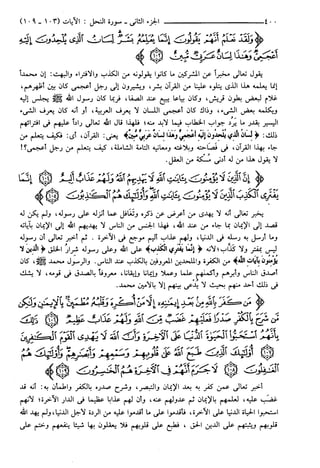 ٤٠٠ ــــــــــــ الجزء الثاني - سورة النحل : الآيات (١٠٣ - ١٠٩)
وَلَقَدْ نَعْلَمُ أَنَّهُمْ يَقُولُونَ إِنَّمَا يُعَلِّمُهُ بَشَرٌ لِّسَانُ الَّذِي يُلْحِدُونَ إِلَيْهِ أَعْجَمِيٌّ وَهَٰذَا
لِسَانٌ عَرَبِيٌّ مُّبِينٌ ﴿١٠٣﴾
يقول تعالى مخبراً عن المشركين ما كانوا يقولونه من الكذب والافتراء والبهت: إن محمداً
إنما يعلمه هذا الذي يتلوه علينا من القرآن بشر، ويشيرون إلى رجل أعجمي كان بين أظهرهم،
غلام لبعض بطون قريش، وكان بياعا يبيع عند الصفا، فربما كان رسول الله ﷺ يجلس إليه
ويكلمه بعض الشيء، وذاك كان أعجمي اللسان لا يعرف العربية، أو أنه كان يعرف الشيء
اليسير بقدر ما يَرُد جواب الخطاب فيما لابد منه، فلهذا قال الله تعالى راداً عليهم في افترائهم
ذلك: ﴿لِسَانُ الَّذِي يُلْحِدُونَ إِلَيْهِ أَعْجَمِيٌّ وَهَٰذَا لِسَانٌ عَرَبِيٌّ مُّبِينٌ﴾ يعني: القرآن، أي: فكيف يتعلم من
جاء بهذا القرآن، في فصاحته وبلاغته ومعانيه التامة الشاملة، كيف يتعلم من رجل أعجمي؟!
لا يقول هذا من له أدنى مُسكة من العقل.
إِنَّ الَّذِينَ لَا يُؤْمِنُونَ بِآيَاتِ اللَّهِ لَا يَهْدِيهِمُ اللَّهُ وَلَهُمْ عَذَابٌ أَلِيمٌ ﴿١٠٤﴾ إِنَّمَا
يَفْتَرِي الْكَذِبَ الَّذِينَ لَا يُؤْمِنُونَ بِآيَاتِ اللَّهِ وَأُولَٰئِكَ هُمُ الْكَاذِبُونَ ﴿١٠٥﴾
يخبر تعالى أنه لا يهدي من أعرض عن ذكره وتَغَافل عما أنزله على رسوله، ولم يكن له
قصد إلى الإيمان بما جاء من عند الله، فهذا الجنس من الناس لا يهديهم الله إلى الإيمان بآياته
وما أرسل به رسله في الدنيا، ولهم عذاب أليم موجع في الآخرة . ثم أخبر تعالى أن رسوله
ليس بمفتر ولا كَذَّاب؛ لأنه ﴿إِنَّمَا يَفْتَرِي الْكَذِبَ﴾ على الله وعلى رسوله شرارُ الخلق ﴿الَّذِينَ لَا
يُؤْمِنُونَ بِآيَاتِ اللَّهِ﴾ من الكفرة والملحدين المعروفين بالكذب عند الناس. والرسول محمد ﷺ، كان
أصدق الناس وأبرهم وأكملهم علما وعملا وإيمانا وإيقانا، معروفاً بالصدق في قومه، لا يشك
في ذلك أحد منهم بحيث لا يُدعَى بينهم إلا بالأمين محمد.
مَن كَفَرَ بِاللَّهِ مِن بَعْدِ إِيمَانِهِ إِلَّا مَنْ أُكْرِهَ وَقَلْبُهُ مُطْمَئِنٌّ بِالْإِيمَانِ وَلَٰكِن
مَّن شَرَحَ بِالْكُفْرِ صَدْرًا فَعَلَيْهِمْ غَضَبٌ مِّنَ اللَّهِ وَلَهُمْ عَذَابٌ عَظِيمٌ ﴿١٠٦﴾ ذَٰلِكَ
بِأَنَّهُمُ اسْتَحَبُّوا الْحَيَاةَ الدُّنْيَا عَلَى الْآخِرَةِ وَأَنَّ اللَّهَ لَا يَهْدِي الْقَوْمَ الْكَافِرِينَ
﴿١٠٧﴾ أُولَٰئِكَ الَّذِينَ طَبَعَ اللَّهُ عَلَىٰ قُلُوبِهِمْ وَسَمْعِهِمْ وَأَبْصَارِهِمْ وَأُولَٰئِكَ هُمُ
الْغَافِلُونَ ﴿١٠٨﴾ لَا جَرَمَ أَنَّهُمْ فِي الْآخِرَةِ هُمُ الْخَاسِرُونَ ﴿١٠٩﴾
أخبر تعالى عمن كفر به بعد الإيمان والتبصر، وشرح صدره بالكفر واطمأن به: أنه قد
غضب عليه، لعلمهم بالإيمان ثم عدولهم عنه، وأن لهم عذابا عظيما في الدار الآخرة؛ لأنهم
استحبوا الحياة الدنيا على الآخرة، فأقدموا على ما أقدموا عليه من الردة لأجل الدنيا، ولم يهد الله
قلوبهم ويثبتهم على الدين الحق ، فطبع على قلوبهم فلا يعقلون بها شيئا ينفعهم وختم على